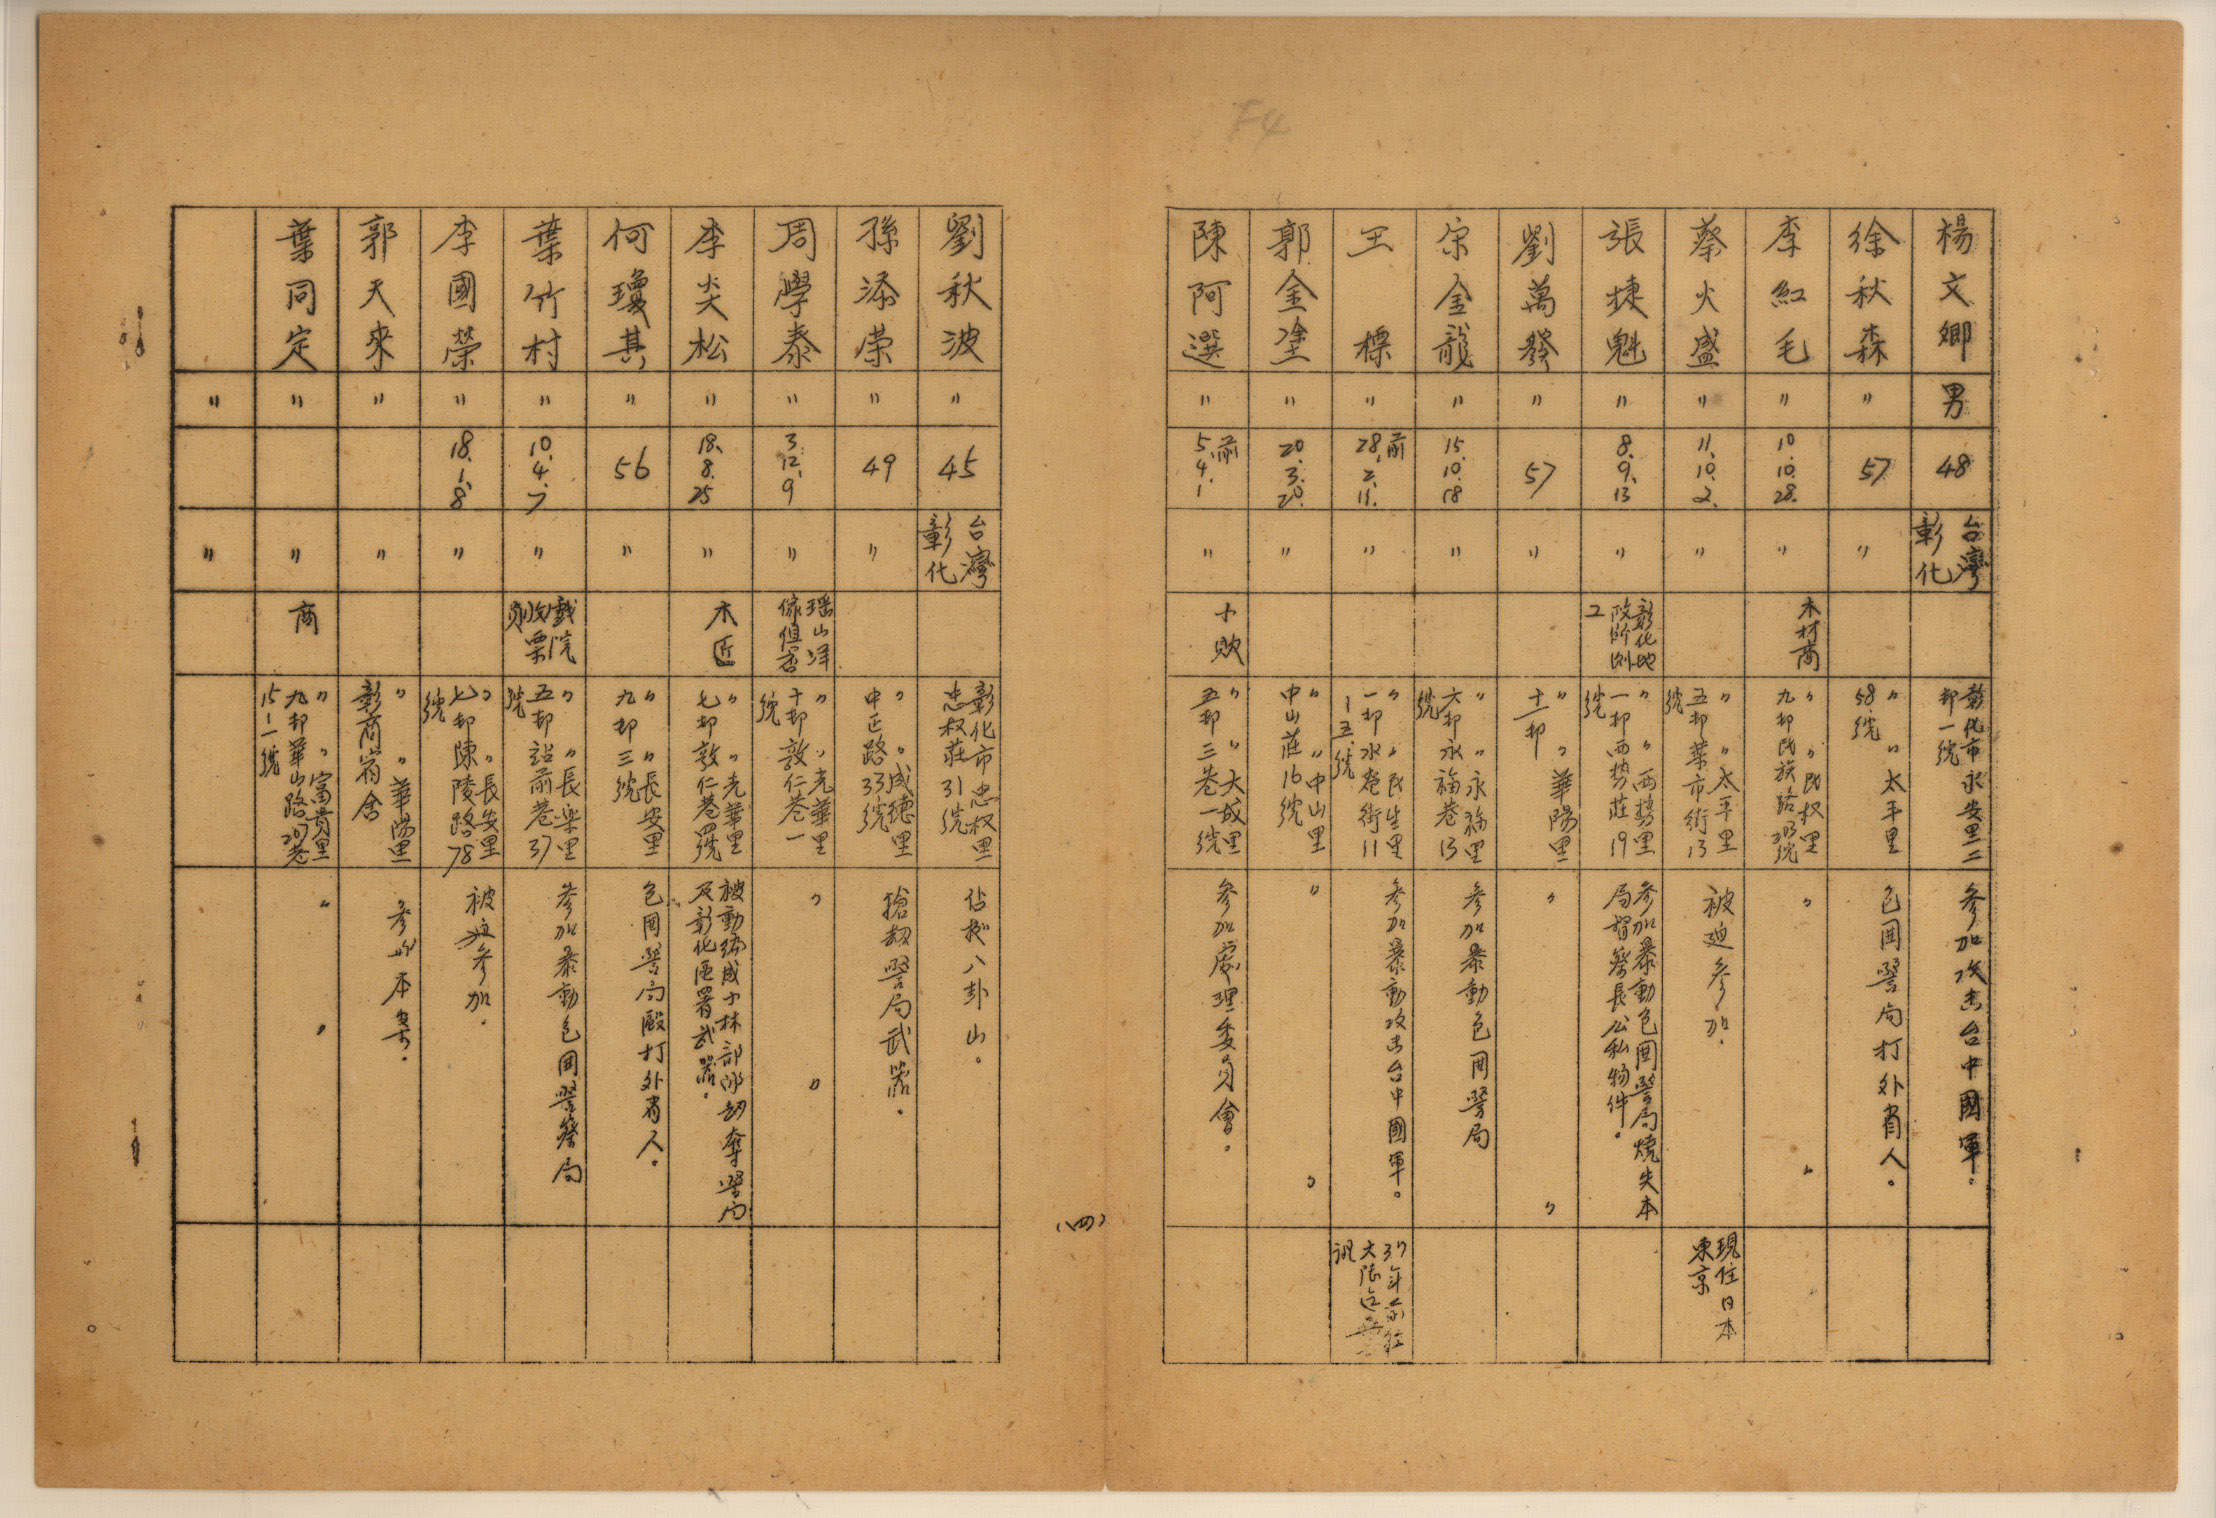 F4
楊文鄉
男
48
台灣
彰化
彰化市永安里二
邻一號
參加攻击台中國軍.
徐秋森
〃
57
〃
〃 〃 太平里
58號
包囲警局打外省人。
李紅毛
〃
10.10.28.
〃
木材商
〃 〃 民权里
九邻民族路
〃 〃
蔡火盛
〃
11.10.2.
〃
〃 〃 太平里
五邻菜市街13
號
被迫參加.
現住日本
東京
張捷魁
〃
8.9.13
〃
彰化地
政所测
工
〃 〃 西势里
一邻西势莊19
號
參加暴動包囲警局燒失本
局督察長公私物件。
劉萬發
〃
57
〃
〃 〃 華陽里
十一邻
〃 〃
宋金龍
〃
15.10.18
〃
〃 〃 永福里
六邻永福巷13
號
參加暴動包囲警局
王標
〃
前
28.2.11.
〃
〃 〃 民生里
一邻水窪街11
-五號
參加暴動攻击台中國軍。
37年前往
大陸迄無
訊
郭金塗
〃
20.3.20.
〃
〃 〃 中山里
中山莊16號
〃 〃
陳阿選
〃
前
5.4.1
〃
小販
〃 〃 大城里
五邻三巷一號
參加處理委員會。
(四)
劉秋波
〃
45
台灣
彰化
彰化市忠权里
忠权莊31號
佔投八卦山。
孫添荣
〃
49
〃
〃 〃 成德里
中正路33號
搶刼警局武器.
周學泰
〃
3.12.9
〃
瑶山洋
傢俱店
〃 〃 光華里
十邻敦仁巷一
號
〃 〃
李尖松
〃
18.8.25
〃
木匠
〃 〃 光華里
七邻敦仁巷號
被動編成小林部隊刼奪警局
及彰化區署武器.
何瓊其
〃
56
〃
〃 〃 長安里
九邻三號
包囲警局殴打外省人。
葉竹村
〃
10.4.7
〃
戲院
收票
員
〃 〃 長樂里
五邻詔前巷37
號
參加暴動包囲警察局
李國榮
〃
18.1.8
〃
〃 〃 長安里
七邻陳陵路78
號
被迫參加.
郭天來
〃
〃
〃 〃 華陽里
彰商宿舍
參加本案.
葉同定
〃
〃
商
〃 〃 富貴里
九邻華山路207巷
15-一號
〃 〃
〃
〃